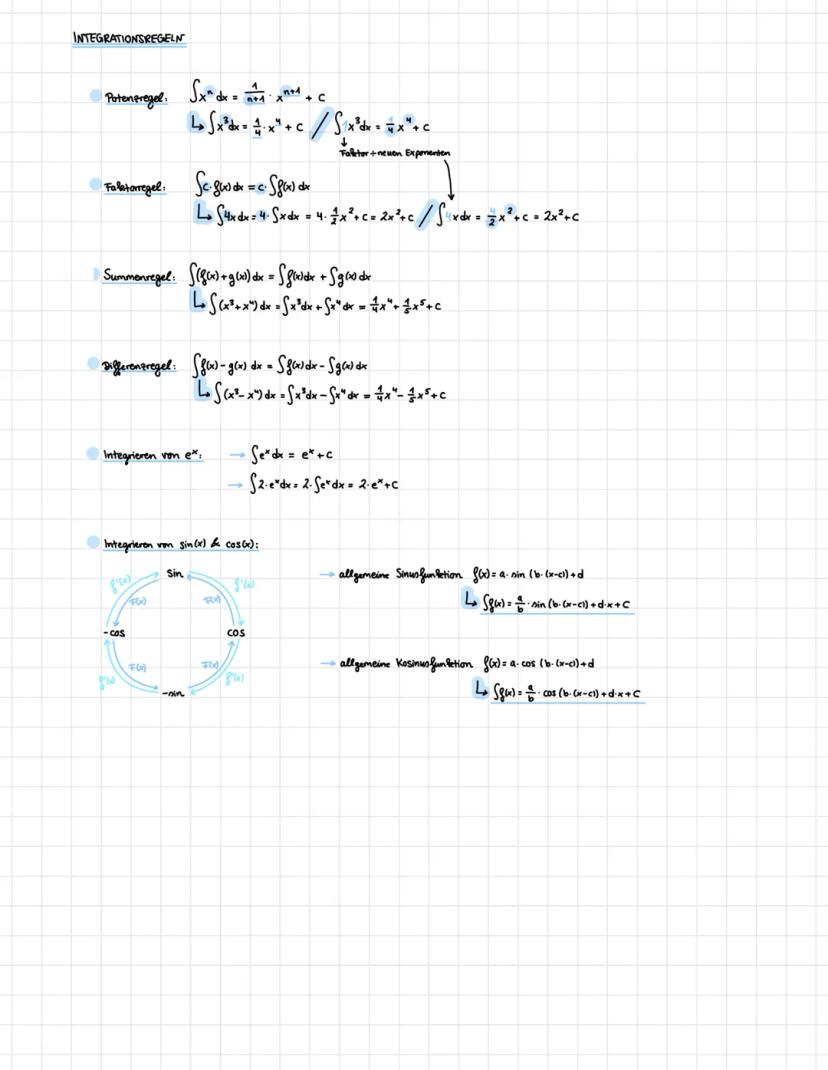 INTEGRATIONSREGELN
Potenzregel: ∫xⁿ dx = 1/(n+1) · xⁿ⁺¹ + C
↳ ∫x³dx = 1/4 · x⁴ + C / ∫1x³dx = 1/4 x⁴ + C
Faktor ÷ neuen Exponenten
Faktorregel: ∫c·f(x) dx = c·∫f(x) dx
↳ ∫4x dx = 4·∫x dx = 4·1/2x²+C = 2x²+C / ∫4x dx = 4/2 x²+C = 2x²+C
Summenregel: ∫(f(x)+g(x)) dx = ∫f(x)dx + ∫g(x) dx
↳ ∫(x³+x⁴) dx = ∫x³dx + ∫x⁴ dx = 1/4x⁴ + 1/5x⁵+C
Differenzregel: ∫f(x)-g(x) dx = ∫f(x)dx - ∫g(x) dx
↳ ∫(x³-x⁴) dx = ∫x³dx - ∫x⁴ dx = 1/4x⁴ - 1/5x⁵+C
Integrieren von eˣ: → ∫eˣ dx = eˣ + C
→ ∫2·eˣ dx = 2·∫eˣ dx = 2·eˣ+C
Integrieren von sin(x) & cos(x):
sin → allgemeine Sinusfunktion f(x) = a·sin (b·(x-c))+d
f'(x) f'(x)
F(x) F(x) ↳ ∫f(x) = a/b · sin (b·(x-c)) + d·x + C
-cos cos
F(x) F(x) → allgemeine Kosinusfunktion f(x) = a·cos (b·(x-c))+d
f'(x) f'(x)
-sin ↳ ∫f(x) = a/b · cos (b·(x-c)) + d·x + C